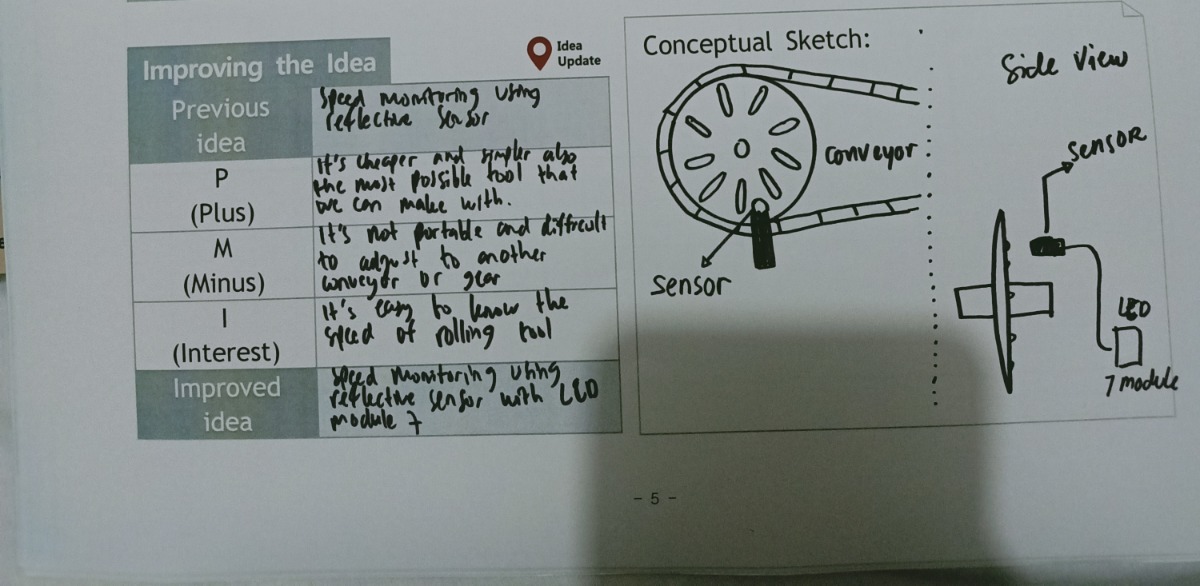 Improving the Idea
Idea
Update
Previous
idea
Speed monitoring using
reflective sensor
P
(Plus)
It's cheaper and simpler also
the most possible tool that
we can make with.
M
(Minus)
It's not portable and difficult
to adjust to another
conveyor or gear
I
(Interest)
It's easy to know the
speed of rolling tool
Improved
idea
Speed monitoring using
reflective sensor with LED
module 7
Conceptual Sketch:
conveyor
sensor
Side View
sensor
LED
7 module
- 5 -